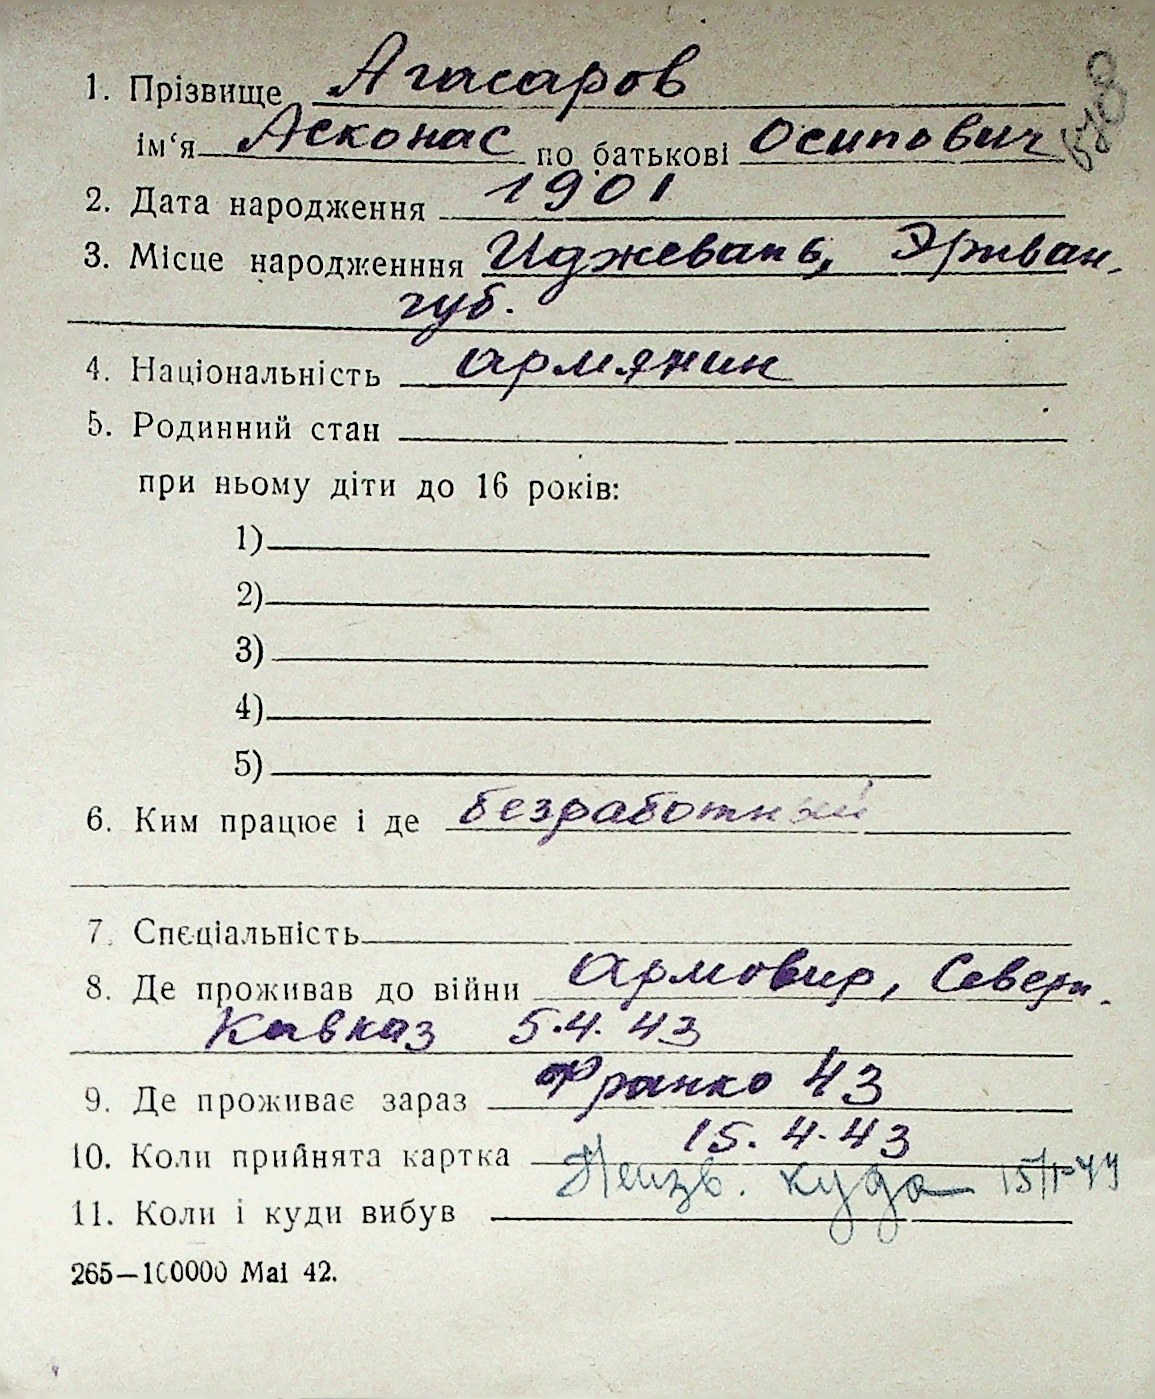 1. Прізвище Агасаров
ім‘я Асконас по батькові Осипович
2. Дата народження 1901
3. Місце народженння Иджевань, Эриван.
губ.
4. Національність армянин
5. Родинний стан
при ньому діти до 16 років:
1)
2)
3)
4)
5)
6. Ким працює і де безработный
7. Спєціальність
8. Де проживав до війни Армовир, Северн.
Кавказ 5.4.43
9. Де проживає зараз Франко 43
10. Коли прийнята картка 15.4.43
11. Коли і куди вибув Неизв. куда 15/I-44
265—100000 Mai 42.